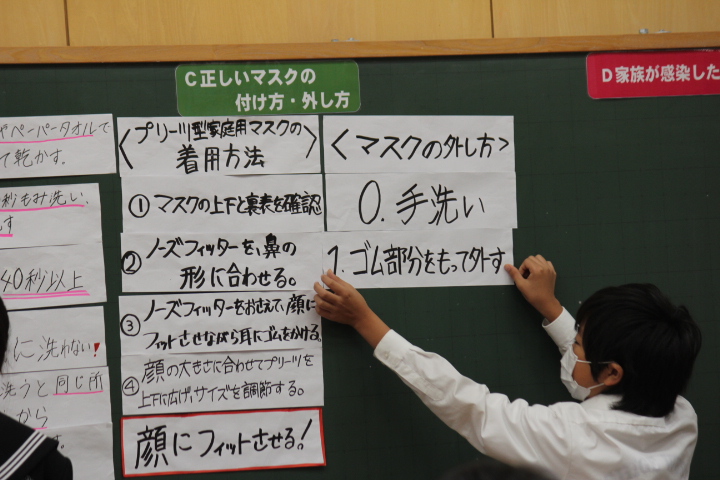 C正しいマスクの
付け方・外し方
D家族が感染した
ペーパータオルで
て乾かす。
秒もみ洗い、
す
40秒以上
に洗わない!
洗うと同じ所
から
す。
〈プリーツ型家庭用マスクの〉
着用方法
①マスクの上下と裏表を確認
②ノーズフィッターを、鼻の
形に合わせる。
③ノーズフィッターをおさえて、顔に
フィットさせながら耳にゴムをかける。
④顔の大きさに合わせてプリーツを
上下に広げ、サイズを調節する。
顔にフィットさせる!
〈マスクの外し方〉
0.手洗い
1.ゴム部分をもって外す